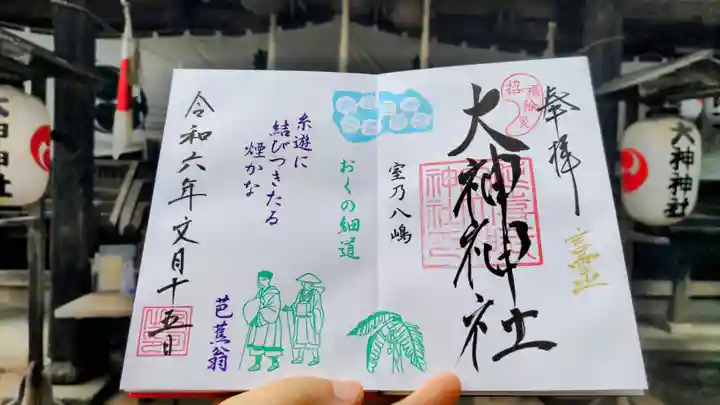 奉拝
招
福除災
大神神社
室乃八嶋
おくの細道
糸遊に
結びつきたる
煙かな
芭蕉翁
令和六年文月十五日
大神神社
大神神社